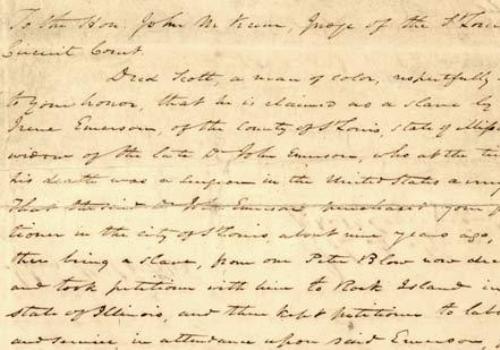 To the Hon. John M. Krum, Judge of the St Loui
Circuit Court
Dred Scott, a man of color, respectfully
to your honor, that he is claimed as a slave by
Irene Emerson, of the County of St Louis, state of Miss
widow of the late Dr John Emerson, who at the ti
his death was a surgeon in the United States arm
That the said Dr John Emerson purchased your p
tioner in the city of St Louis, about nine years ago,
then being a slave, from one Peter Blow now dec
and took petitioner with him to Rock Island in
state of Illinois, and then kept petitioner to labo
and service in attendance upon said Emerson,